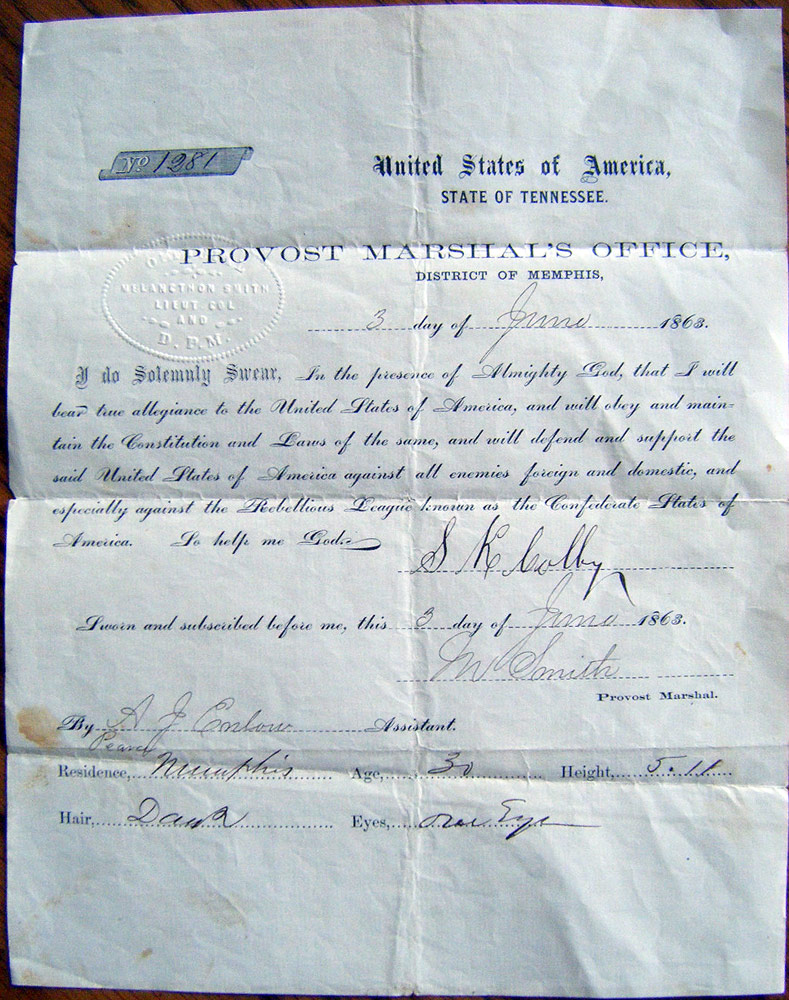 No 1281
United States of America,
STATE OF TENNESSEE.
PROVOST MARSHAL'S OFFICE,
DISTRICT OF MEMPHIS,
MELANCTHON SMITH
LIEUT COL
AND
D. P. M.
3 day of June 1863.
I do Solemnly Swear, In the presence of Almighty God, that I will
bear true allegiance to the United States of America, and will obey and main-
tain the Constitution and Laws of the same, and will defend and support the
said United States of America against all enemies foreign and domestic, and
especially against the Rebellious League known as the Confederate States of
America. So help me God.
S K Colby
Sworn and subscribed before me, this 3 day of June 1863.
M Smith
Provost Marshal.
By A J Enlow Assistant.
Residence, Memphis Age, 30 Height, 5.11
Hair, Dark Eyes, One Eye